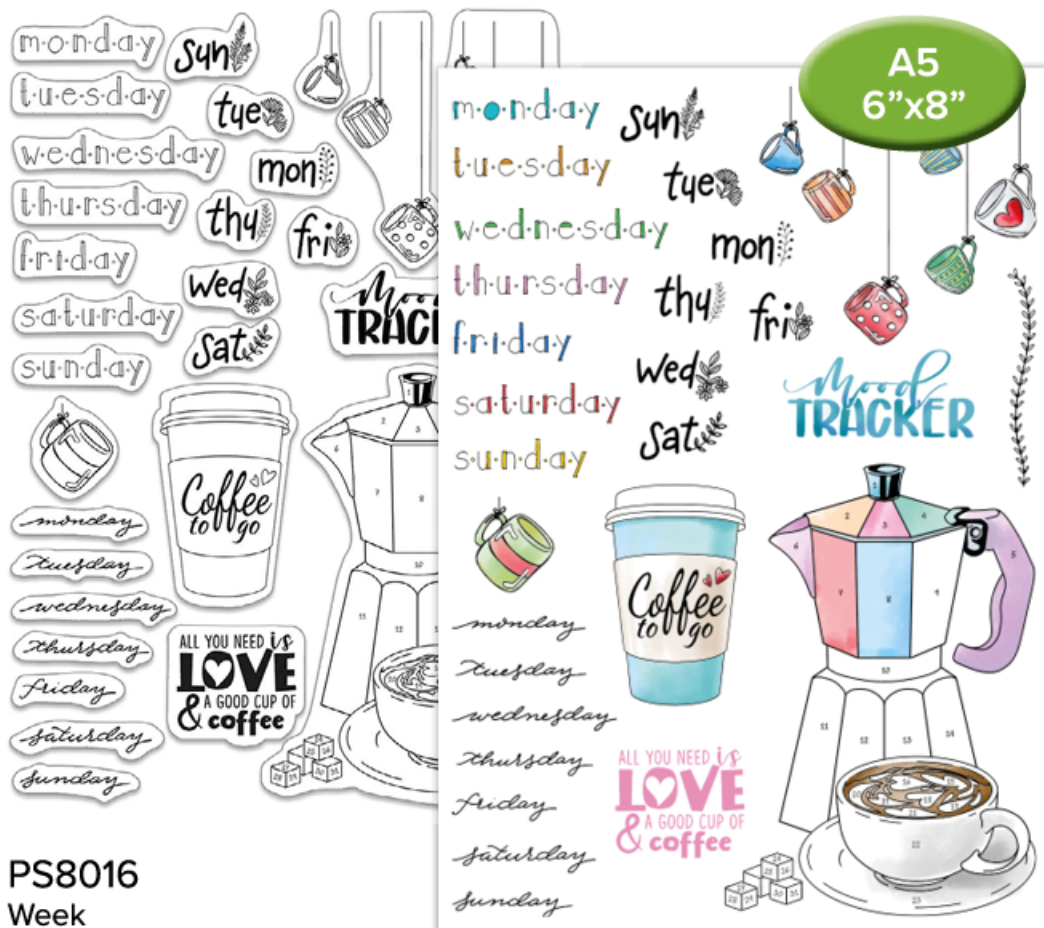 monday
tuesday
wednesday
thursday
friday
saturday
sunday
sun
tue
mon
thu
fri
wed
sat
Mood
TRACKER
Coffee
to go
monday
tuesday
wednesday
thursday
friday
saturday
sunday
ALL YOU NEED is
LOVE
& A GOOD CUP OF
coffee
PS8016
Week
A5
6”x8”
monday
tuesday
wednesday
thursday
friday
saturday
sunday
sun
tue
mon
thu
fri
wed
sat
Mood
TRACKER
Coffee
to go
monday
tuesday
wednesday
thursday
friday
saturday
sunday
ALL YOU NEED is
LOVE
& A GOOD CUP OF
coffee